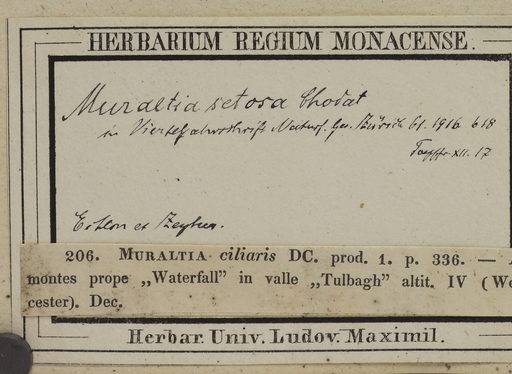 HERBARIUM REGIUM MONACENSE.
Muraltia setosa Chodat
in Vierteljahrschrift Naturf. Ges. Zürich 61. 1916 618
XII. 17
Ecklon et Zeyher.
206. MURALTIA ciliaris DC. prod. 1. p. 336. —
montes prope „Waterfall” in valle „Tulbagh” altit. IV (Wo
cester). Dec.
Herbar. Univ. Ludov. Maximil.